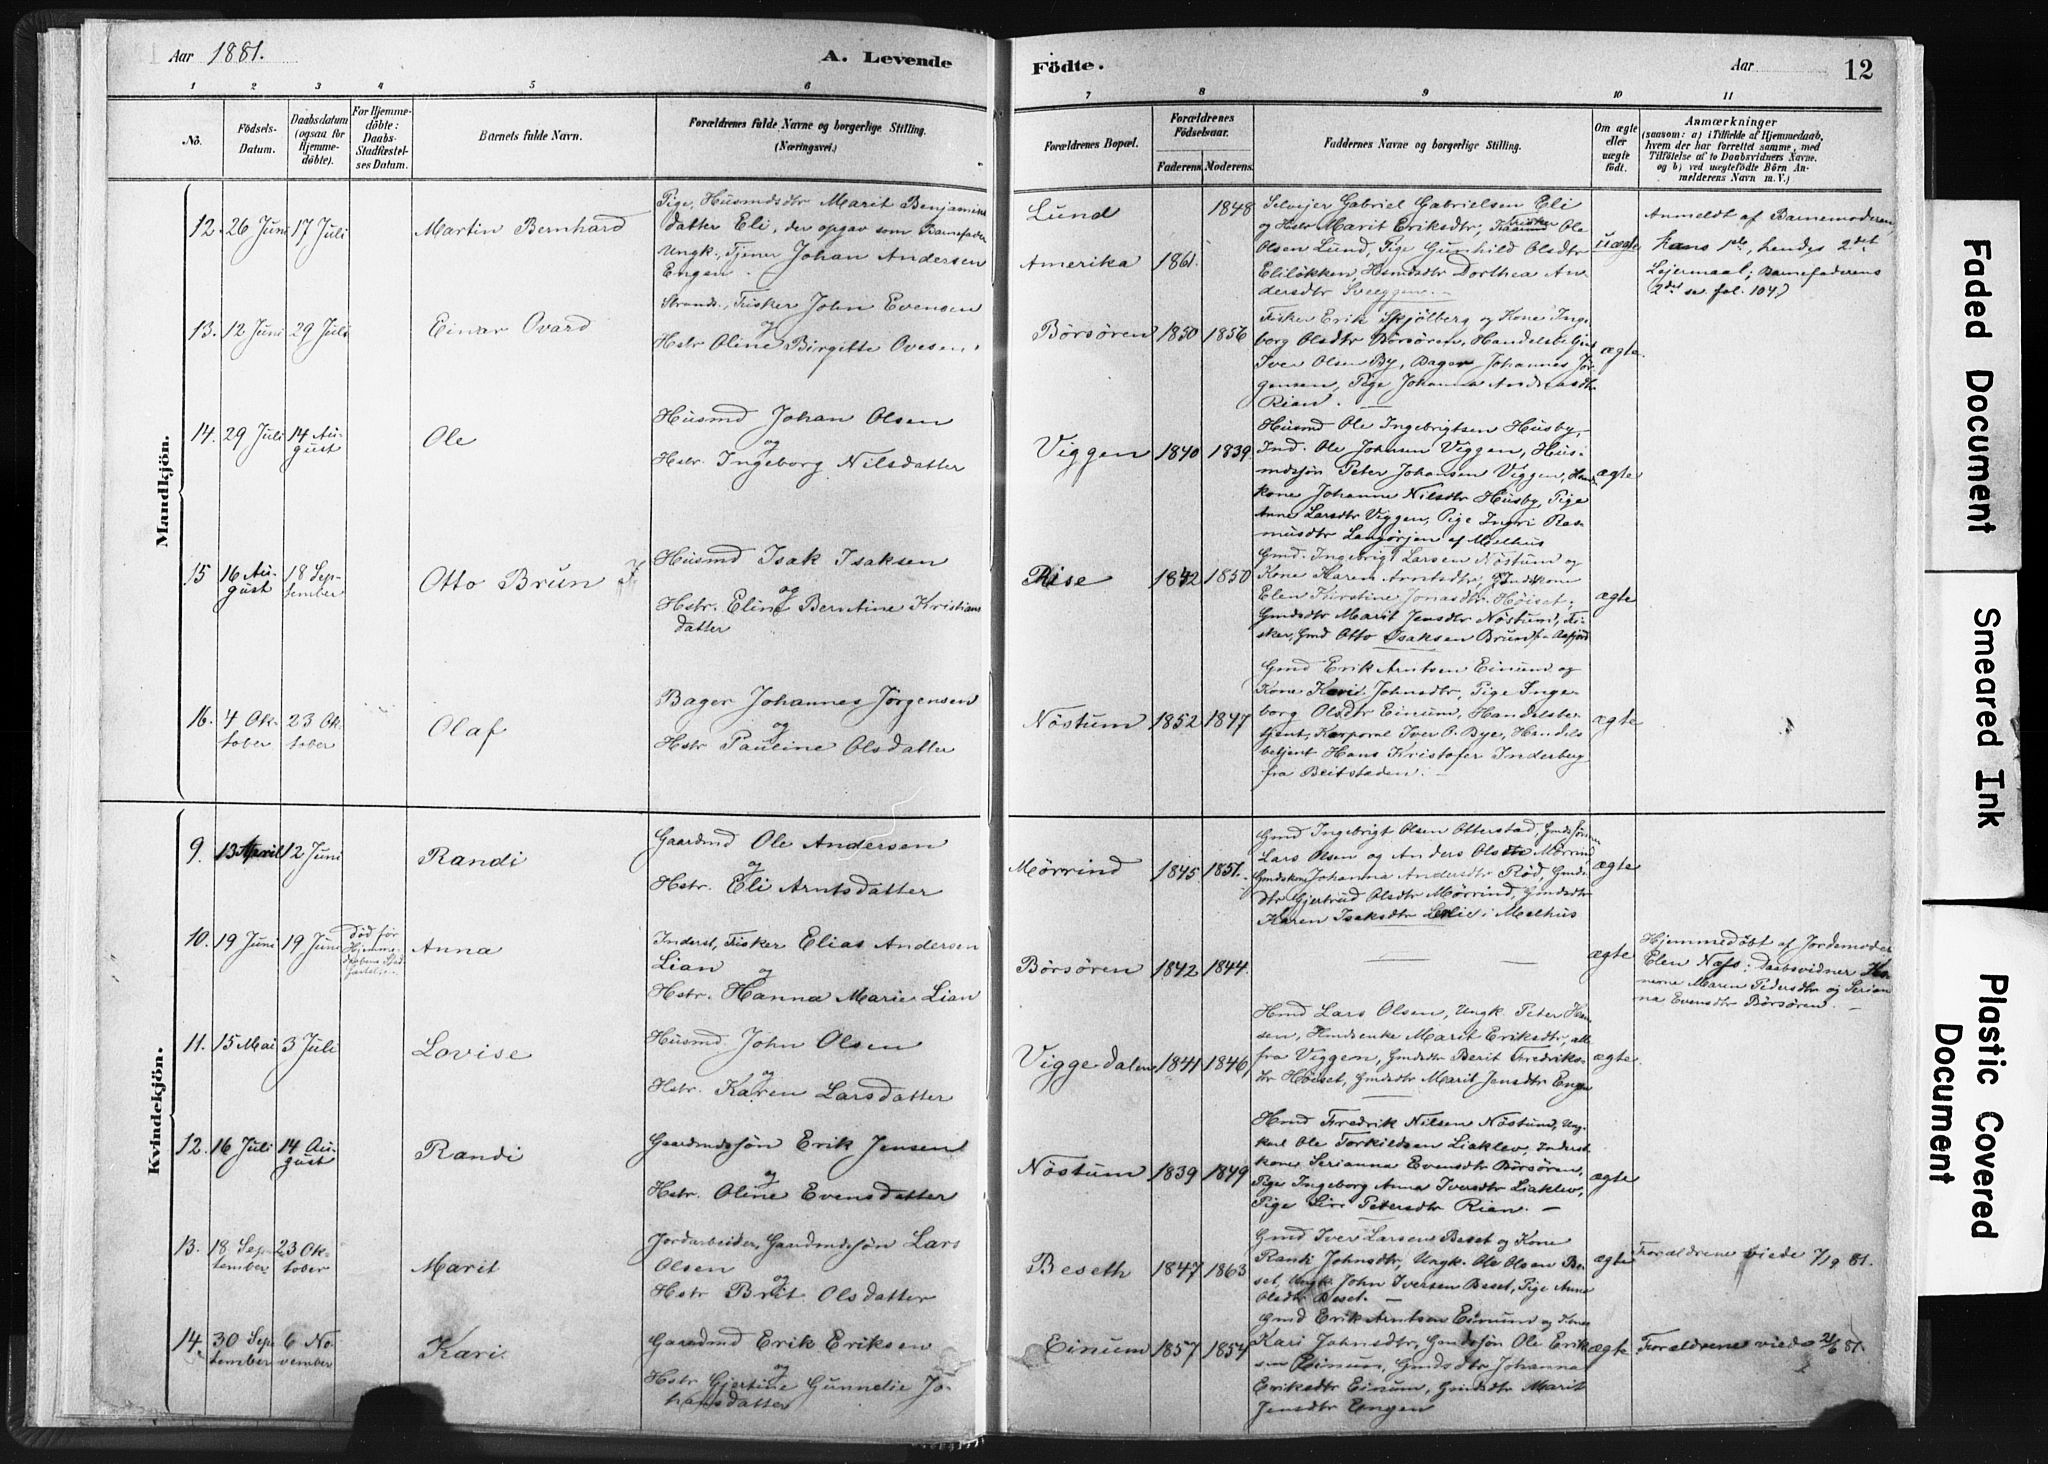 Aar 1881.
A. Levende
Födte.
Aar
12
1 2 3 4 5 6 7 8 9 10 11
No.
Födsels-
Datum.
Daabsdatum
(ogsaa for
Hjemme-
döbte).
For Hjemme-
döbte:
Daabs-
Stadfæstel-
ses Datum.
Barnets fulde Navn.
Forældrenes fulde Navne og borgerlige Stilling.
(Næringsvei.)
Forældrenes Bopæl.
Forældrenes
Födselsaar.
Faderens Moderens
Faddernes Navne og borgerlige Stilling.
Om ægte
eller
uægte
født.
Anmærkninger
(saasom: a) i Tilfælde af Hjemmedaab,
hvem der har forrettet samme, med
Tilföielse af to Daabsvidners Navne,
og b) ved uægtefödte Börn An-
melderens Navn m. V.)
Mandkjön.
12. 26 Juni 17 Juli
Martin Bernhard
Pige, Husmdsdtr Marit Benjamins
datter Eli, der opgav som Barnefader
Ungk., Tjener Johan Andersen
Engen.
Lund 1848
Amerika 1861.
Selvejer Gabriel Gabrielsen Eli
og Hstr Marit Eriksdtr, Fisker Ole
Olsen Lund, Pige Gunhild Olsdtr
Eliløkken, Hsmdsdtr Dorthea An-
dersdtr Sveeggen.
uægte
Anmeldt af Barnemoderen,
hans 1ste, hendes 2det
Lejermaal; Barnefaderens
2det se fol. 104
13. 12 Juni 29 Juli
Einar Ovard
Strands., Fisker John Evensen
og
Hstr Oline Birgitte Ovesen.
Börsören 1850 1856
Fisker Erik Skjölberg og Kone Inge-
borg Olsdtr Börsören, Handelsbetjent
Iver Olsen By, Bager Johannes Jör-
gensen, Pige Johanna Andreasdtr
Rian.
ægte
14. 29 Juli 14 Au-
gust
Ole
Husmd Johan Olsen
og
Hstr. Ingeborg Nilsdatter
Viggen 1840 1839
Husmd Ole Ingebrigtsen Husby,
Ind. Ole Johnsen Viggen, Hus-
mdssøn Peter Johansen Viggen,
kone Johanne Nilsdtr Husby, Pige
Anne Larsdtr Viggen, Pige Ingri Ras-
musdtr Langørjen af Melhus
ægte
15 16 Au-
gust 18 Sep-
tember
Otto Brun
Husmd Isak Isaksen
og
Hstr. Eline Berntine Kristians
datter
Rise 1842 1850
Gmd. Ingebrigt Larsen Nöstum og
Kone Karen Arntsdtr, Gmdskone
Elen Kirstine Jonasdtr Höiset,
Gmdsdtr Marit Jensdtr Nöstum, Fi-
sker, Gmd Otto Isaksen Brun fra
ægte
16. 4 Ok-
tober 23 Ok-
tober
Olaf
Bager Johannes Jörgensen
og
Hstr Pauline Olsdatter
Nöstum 1852 1847
Gmd Erik Arntsen Einum og
Kone Kari Johnsdtr, Pige Inge-
borg Olsdtr Einum, Handelsbe-
tjent, Korporal Iver O. Bye, Handels
betjent Hans Kristofer Inderberg
fra Beitstaden.
ægte
Kvindekjön.
9. 13 April 12 Juni
Randi
Gaardmd Ole Andersen
og
Hstr. Eli Arntsdatter
Mörrind 1845 1851.
Gmd Ingebrigt Olsen Otterstad, Gmdssønnen
Lars Olsen og Anders Olsen Mörrind,
Gmdskone Johanna Andersdtr Röd, Gmds-
dtr Gjertrud Olsdtr Mörrind, Gmdsdtr
Karen Isaksdtr i Melhus
ægte
10. 19 Juni 19 Juni
død før
Hjemme-
daabens Stad
fæstelse
Anna
Inderst, Fisker Elias Andersen
Lian
og
Hstr. Hanna Marie Lian
Börsören 1842 1844.
ægte
Hjemmedöbt af Jordemoder
Elen Næss; Daabsvidner Ko-
nerne Maren Pedersdtr og Serian-
na Evensdtr Börsören.
11. 15 Mai 3 Juli
Lovise
Husmd. John Olsen
og
Hstr. Karen Larsdatter
Viggedalen 1841 1846
Hmd Lars Olsen, Ungk Peter Han-
sen, Hmdsenke Marit Eriksdtr, alle
fra Viggen, Gmdsdtr Berit Fredriks-
dtr Höiset, Gmdsdtr Marit Jensdtr Engen
ægte
12. 16 Juli 14 Au-
gust
Randi
Gaardmdssön Erik Jensen
og
Hstr. Oline Evensdatter
Nöstum 1839 1849
Hmd Fredrik Nilsen Nöstum, Ung-
karl Ole Torkildsen Liaklev, Inderst
kone Serianna Evensdtr Börsören,
Pige Ingeborg Anna Iversdtr Liaklev,
Pige Siri Petersdtr Rian.
ægte
13. 18 Sep-
tember 23 Ok-
tober
Marit
Jordarbeider, Gaardmdssön Lars
Olsen
og
Hstr Brit Olsdatter
Beseth 1847 1863
Gmd Iver Larsen Beset og Kone
Randi Johnsdtr, Ungk. Ole Olsen Be-
set, Ungk. John Iversen Beset, Pige Anne
Olsdtr Beset.
ægte
Forældrene viede 7/9 81.
14. 30 Sep-
tember 6 No-
vember
Kari
Gaardmd Erik Eriksen
og
Hstr Gjertine Gunnelie Jo-
hansdatter
Einum 1857 1854
Gmd Erik Arntsen Einum og Kone
Kari Johnsdtr, Gmdssön Ole Erik-
sen Einum, Gmdsdtr Johanna
Eriksdtr Einum, Gmdsdtr Marit
Jensdtr Engen
ægte
Forældrene viede 21/6 81.
Faded Document
Smeared Ink
Plastic Covered
Document